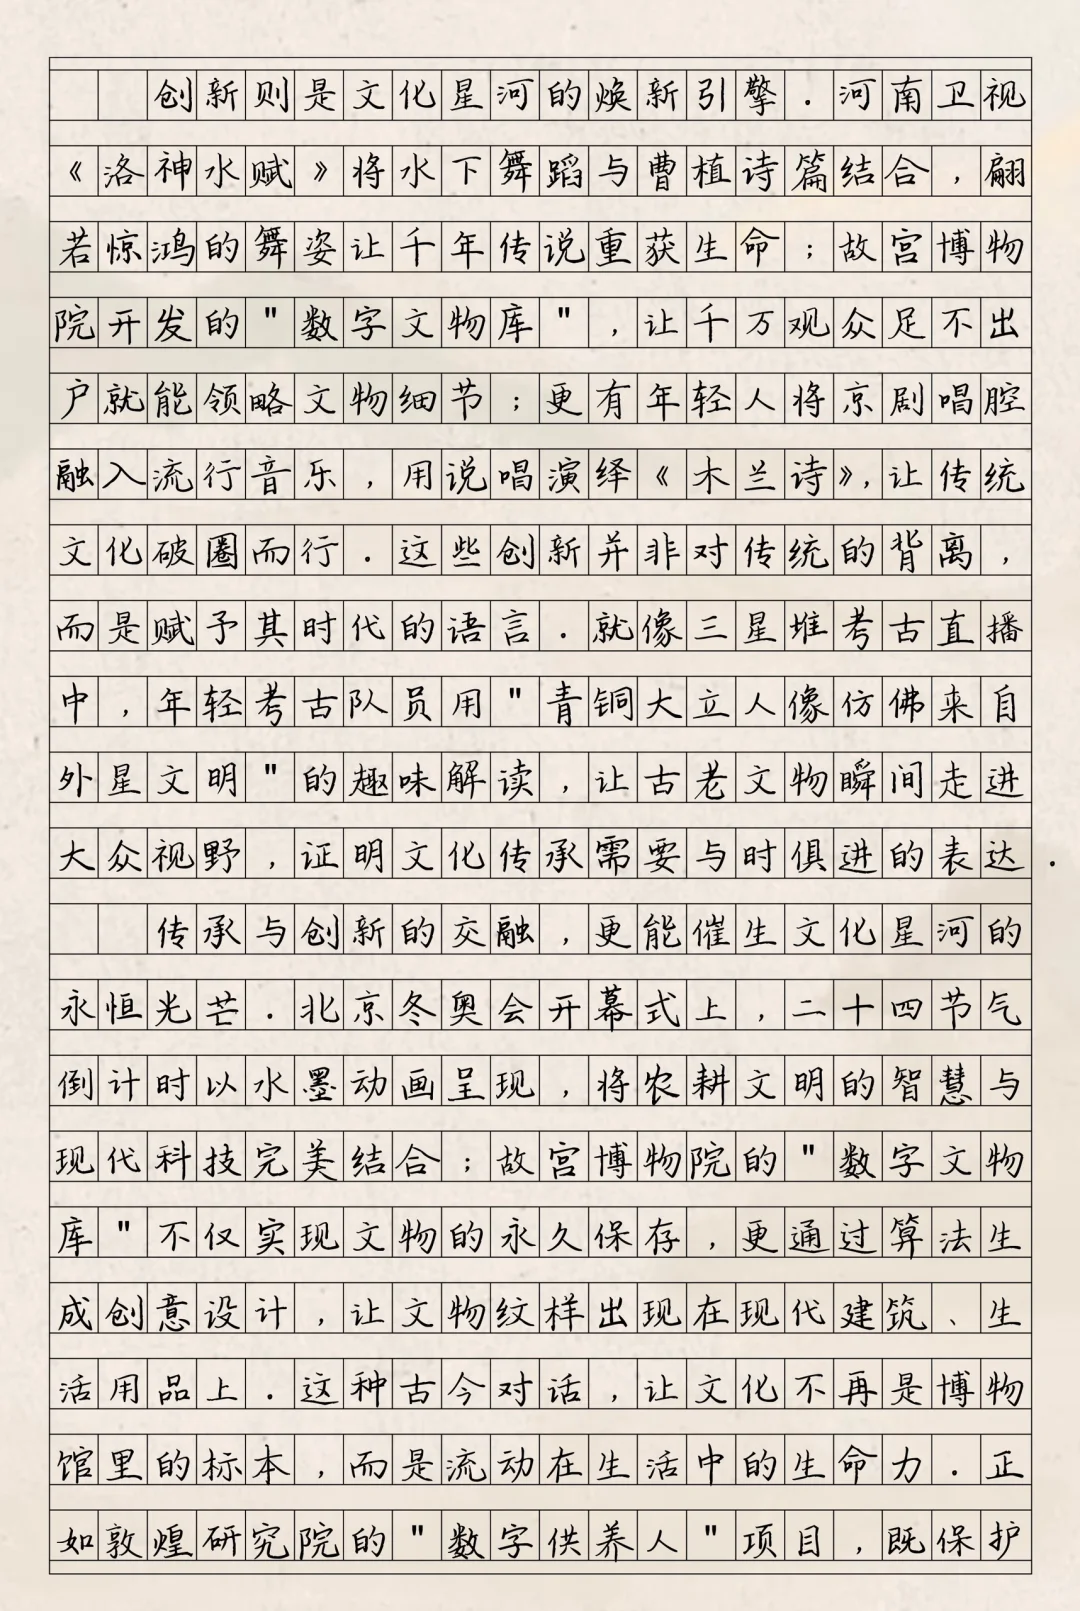 创新则是文化星河的焕新引擎.河南卫视
《洛神水赋》将水下舞蹈与曹植诗篇结合,翩
若惊鸿的舞姿让千年传说重获生命;故宫博物
院开发的"数字文物库",让千万观众足不出
户就能领略文物细节;更有年轻人将京剧唱腔
融入流行音乐,用说唱演绎《木兰诗》,让传统
文化破圈而行.这些创新并非对传统的背离,
而是赋予其时代的语言.就像三星堆考古直播
中,年轻考古队员用"青铜大立人像仿佛来自
外星文明"的趣味解读,让古老文物瞬间走进
大众视野,证明文化传承需要与时俱进的表达.
传承与创新的交融,更能催生文化星河的
永恒光芒.北京冬奥会开幕式上,二十四节气
倒计时以水墨动画呈现,将农耕文明的智慧与
现代科技完美结合;故宫博物院的"数字文物
库"不仅实现文物的永久保存,更通过算法生
成创意设计,让文物纹样出现在现代建筑、生
活用品上.这种古今对话,让文化不再是博物
馆里的标本,而是流动在生活中的生命力.正
如敦煌研究院的"数字供养人"项目,既保护